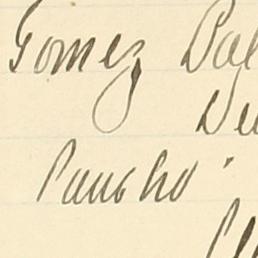 Gomez Bal
De
Pancho